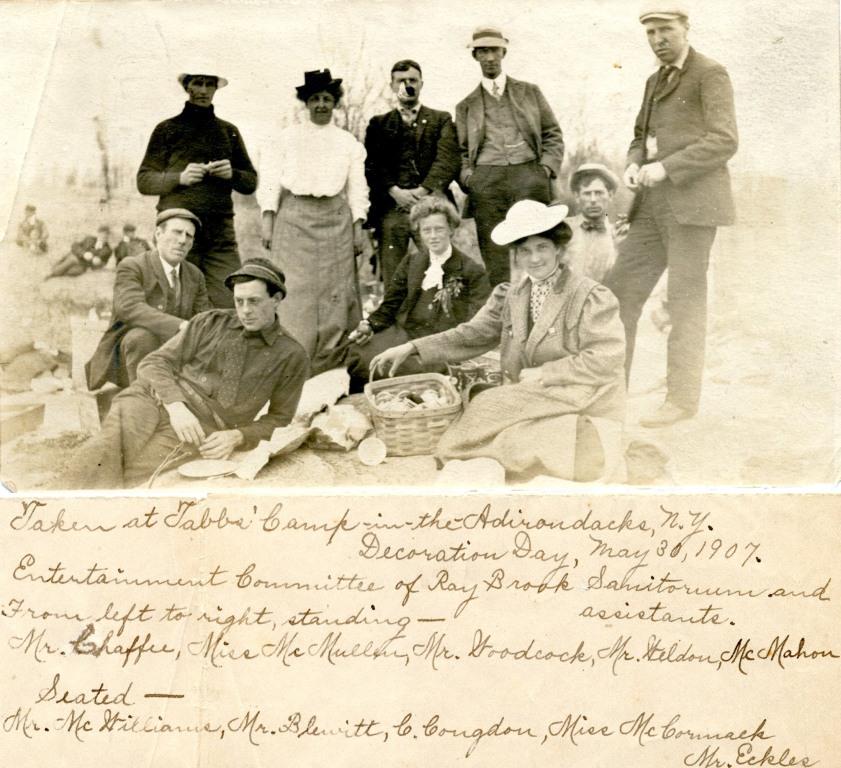 Taken at Tabbs' Camp-in-the-Adirondacks, N.Y.
Decoration Day, May 30, 1907.
Entertainment Committee of Ray Brook Sanitorium and
assistants.
From left to right, standing—
Mr. Chaffee, Miss McMullen, Mr. Woodcock, Mr. Weldon, McMahon
Seated —
Mr. McWilliams, Mr. Blewitt, C. Congdon, Miss McCormack
Mr. Eckles